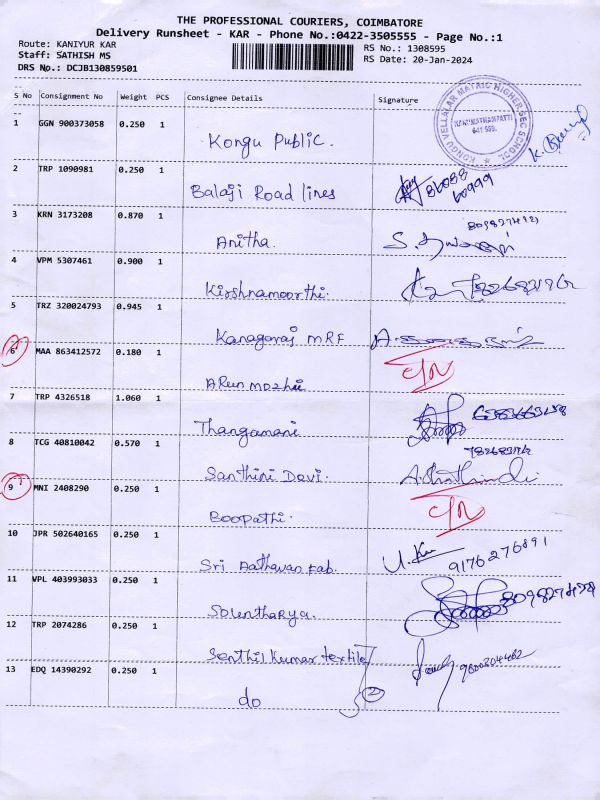 THE PROFESSIONAL COURIERS, COIMBATORE
Delivery Runsheet - KAR - Phone No.:0422-3505555 - Page No.:1
Route: KANIYUR KAR
RS No.: 1308595
Staff: SATHISH MS
RS Date: 20-Jan-2024
DRS No.: DCJB130859501
S No Consignment No Weight PCS Consignee Details Signature
KONGU VELLALAR MATRIC HIGHER SEC SCHOOL
1 GGN 900373058 0.250 1
Kongu Public.
2 TRP 1090981 0.250 1
Balaji Road lines
3 KRN 3173208 0.870 1
Anitha.
4 VPM 5307461 0.900 1
Kirshnamoorthi.
5 TRZ 320024793 0.945 1
Kanagaraj MRF
6 MAA 863412572 0.180 1
ARun mozhi
7 TRP 4326518 1.060 1
Thangamani
8 TCG 40810042 0.570 1
Santhini Devi.
9 MNI 2408290 0.250 1
Boopathi.
10 JPR 502640165 0.250 1
Sri Aathavan Fab. 9176276891
11 VPL 403993033 0.250 1
Solentharya.
12 TRP 2074286 0.250 1
Senthil Kumar textile
13 EDQ 14390292 0.250 1
do 2